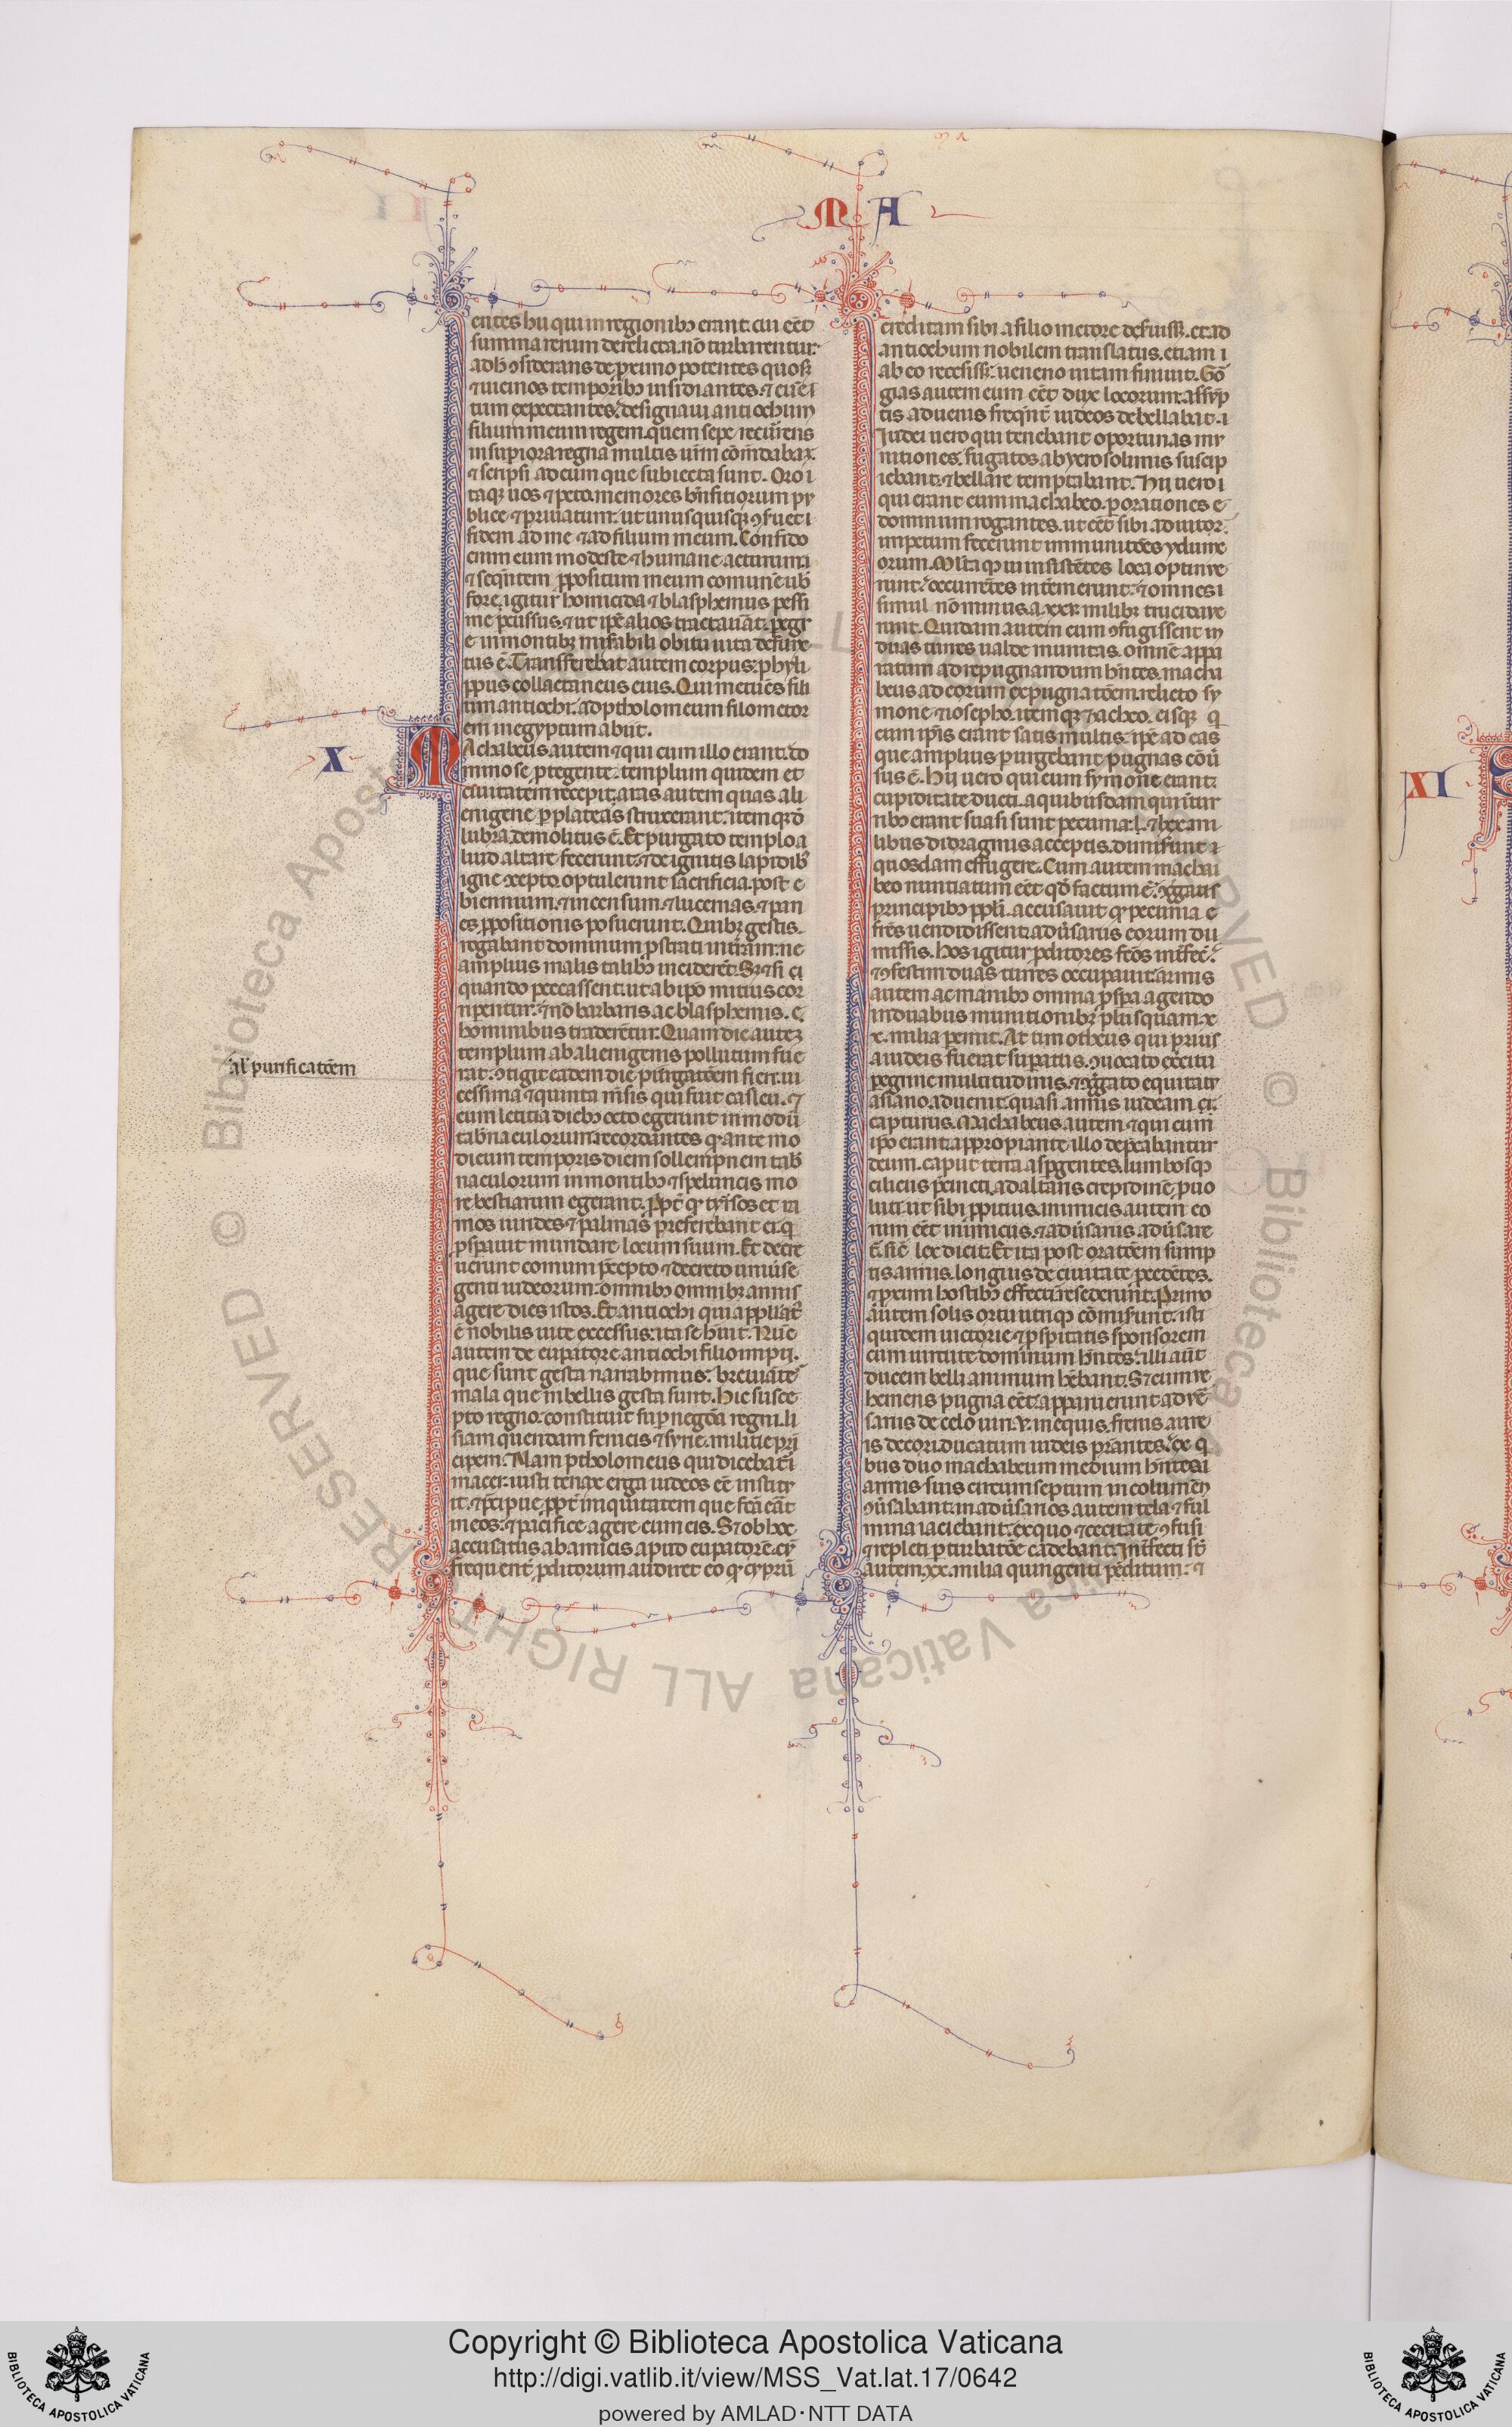 M A
entes hii qui in regionibꝫ erant. cui eēt
summa rerum derelicta. nō turbarentur.
adhꝭ ꝯsiderans de proximo potentes quosqꝫ
⁊ uicinos temporibꝫ insidiantes. ⁊ euen
tum expectantes. designaui antiochum
filium meum regem. quem sepe recurrens
in superiora regna multis urm̄ cōmēdabaꝫ
⁊ scripsi ad eum que subiecta sunt. Oro i
taqꝫ uos ⁊ peto. memores bn̄fitiorum pu
blice ⁊ priuatim. ut unusquisqꝫ ꝯseruet
fidem ad me ⁊ ad filium meum. Confido
enim eum modeste ⁊ humane acturum
⁊ sequentem ꝓpositum meum comune uobꝭ
fore. igitur homicida ⁊ blasphemus pessi
me percussus. ⁊ ut ipē alios tractauāt. peg
e in montibꝫ miserabili obitu uita defunc
tus ē. Transferebat autem corpus. phyli
ppus collactaneus eius. Qui metuēs fili
um antiochi. ad ptholomeum filometor
em in egyptum abiit.
X
Machabeus autem ⁊ qui cum illo erant. do
mino se ꝓtegente. templum quidem et
ciuitatem recepit. aras autem quas ali
enigene ꝑ plateas struxerant. itemqꝫ de
lubra. demolitus ē. Et purgato templo. a
liud altare fecerunt. ⁊ de ignitis lapidibꝭ
igne ꝯcepto. optulerunt sacrificia. post
biennium. ⁊ incensum. ⁊ lucernas. ⁊ pan
es ꝓpositionis posuerunt. Quibꝫ gestis.
rogabant dominum ꝓstrati in terram. ne
amplius malis talibꝫ inciderēt. Sꝫ ⁊ si
quando peccassent. ut ab ipō mitius cor
riperentur. ⁊ nō barbaris ac blasphemis
hominibus traderētur. Quam die autem
templum ab alienigenis pollutum fue
al purificatōem
rat. ꝯtigit eadem die purgatōem fieri. ui
cessima ⁊ quinta mēsis qui fuit casleu. ⁊
cum letitia diebꝫ octo egerunt in modū
tabernaculorum. recordantes qꝫ ante mo
dicum temporis diem sollempnem tabꝭ
naculorum in montibꝫ ⁊ speluncis mo
re bestiarum egerant. Ppt̄ qꝫ tyrsos et ra
mos uirides ⁊ palmas preferebant ei. q
ꝓsperauit mundare locum suum. Et decre
uerunt comuni precepto ⁊ decreto uniuse
genti iudeorum. omnibꝫ omnibꝫ annis
agere dies istos. Et antiochi qui appellatꝰ
ē nobilis uite excessus. ita se hūit. Nunc
autem de eupatore antiochi filio impii.
que sunt gesta narrabimus. breuiātes
mala que in bellis gesta sunt. Hic susce
pto regno. constituit super negōa regni. li
siam quendam fenicis ⁊ syrie. militie prī
cipem. Nam ptholomeus qui dicebatꝰ
macer. iusti tenax erga iudeos eē institu
it. ⁊ precipue ppt̄ iniquitatem que fcā erāt
in eos. ⁊ pacifice agere cum eis. Sꝫ ob hoc
accusatus ab amicis apud eupatorē. cū
frequent ꝓditorum audiret eo qꝫ cyprū
creditam sibi a filometore deseruissꝫ. et ad
antiochum nobilem translatus. etiam
ab eo recesissꝫ. ueneno uitam finiuit. Gor
gias autem cum eēt dux locorum. assūp
tis aduenis frequent iudeos debellabat.
Iudei uero qui tenebant oportunas mu
nitiones. fugatos ab yerosolimis suscip
iebant. ⁊ bellare temptabant. Hii uero
qui erant cum machabeo. ꝑ orationes
dominum rogantes. ut eēt sibi adiutor.
impetum fecerunt in munitōes ydume
orum. Multaqꝫ ui insistētes loca optinue
runt. occurrētes interemerunt. ⁊ omnes
simul nō minus a xxꝫ milibꝫ trucidaue
runt. Quidam autem cum ꝯfugissent in
duas turres ualde munitas. omnē appa
ratum ad repugnandum hn̄tes. macha
beus ad eorum expugnatōem. relicto sy
mone ⁊ iosepho. itemqꝫ zacheo. eisqꝫ q
cum ipīs erant satis multis. ipē ad eas
que amplius ꝑurgebant pugnas cōuer
sus ē. Hii uero qui cum symone erant.
cupiditate ducti. a quibusdam qui in tur
ribꝫ erant suasi sunt pecunia. ⁊ lxx. mi
libus didragmis acceptis. dimiserunt
quosdam effugere. Cum autem macha
beo nuntiatum eēt qd̄ factum ē. ꝯgatis
principibꝫ ppl̄i. accusauit qꝫ pecunia
frēs uendidissent. aduersariis eorum di
missis. Hos igitur ꝓditores fcōs interfecit.
⁊ ꝯfestim duas turres occupauit. armis
autem ac manibꝫ omnia ꝓspera agendo
in duabus munitionibꝫ plusquam. x
x. milia peremit. At timotheus qui prius
a iudeis fuerat superatus. ꝯuocato exercitu
peregrine multitudinis. ⁊ ꝯgregato equitatu
asiano. aduenit. quasi armis iudeam
capturus. Machabeus autem ⁊ qui cum
ipō erant. appropiante illo deprecabantur
deum. caput terra aspergentes. lumbosqꝫ
cilicijs precincti. ad altaris crepidinē ꝓuo
luti. ut sibi ꝓpitius. inimicis autem eo
rum eēt inimicus. ⁊ aduersariis aduersare
t̄. sic̄ lex dicit. Et ita post oratōem sump
tis armis. longius de ciuitate ꝓcedētes.
⁊ proximi hostibꝫ effecti resederunt. Primo
autem solis ortu utriqꝫ cōmiserunt. isti
quidem uictorie ⁊ prosperitatis sponsorem
cum uirtute dominum hn̄tes. illi autē
ducem belli animum hēbant. Sꝫ cum ue
hemens pugna eēt. apparuerunt aduer
sariis de celo uiri. v. in equis. frenis aure
is decori. ducatum iudeis prestantes. ex q
bus duo machabeum medium hn̄tes
armis suis circumseptum incolumem
ꝯseruabant. in aduersarios autem tela ⁊ ful
mina iaciebant. ex quo ⁊ cecitate ꝯfusi
⁊ repleti perturbatōe cadebant. Interfecti sūt
autem. xx. milia quingenti. peditum. ⁊
XI
Copyright © Biblioteca Apostolica Vaticana
http://digi.vatlib.it/view/MSS_Vat.lat.17/0642
powered by AMLAD·NTT DATA
BIBLIOTECA APOSTOLICA VATICANA
BIBLIOTECA APOSTOLICA VATICANA